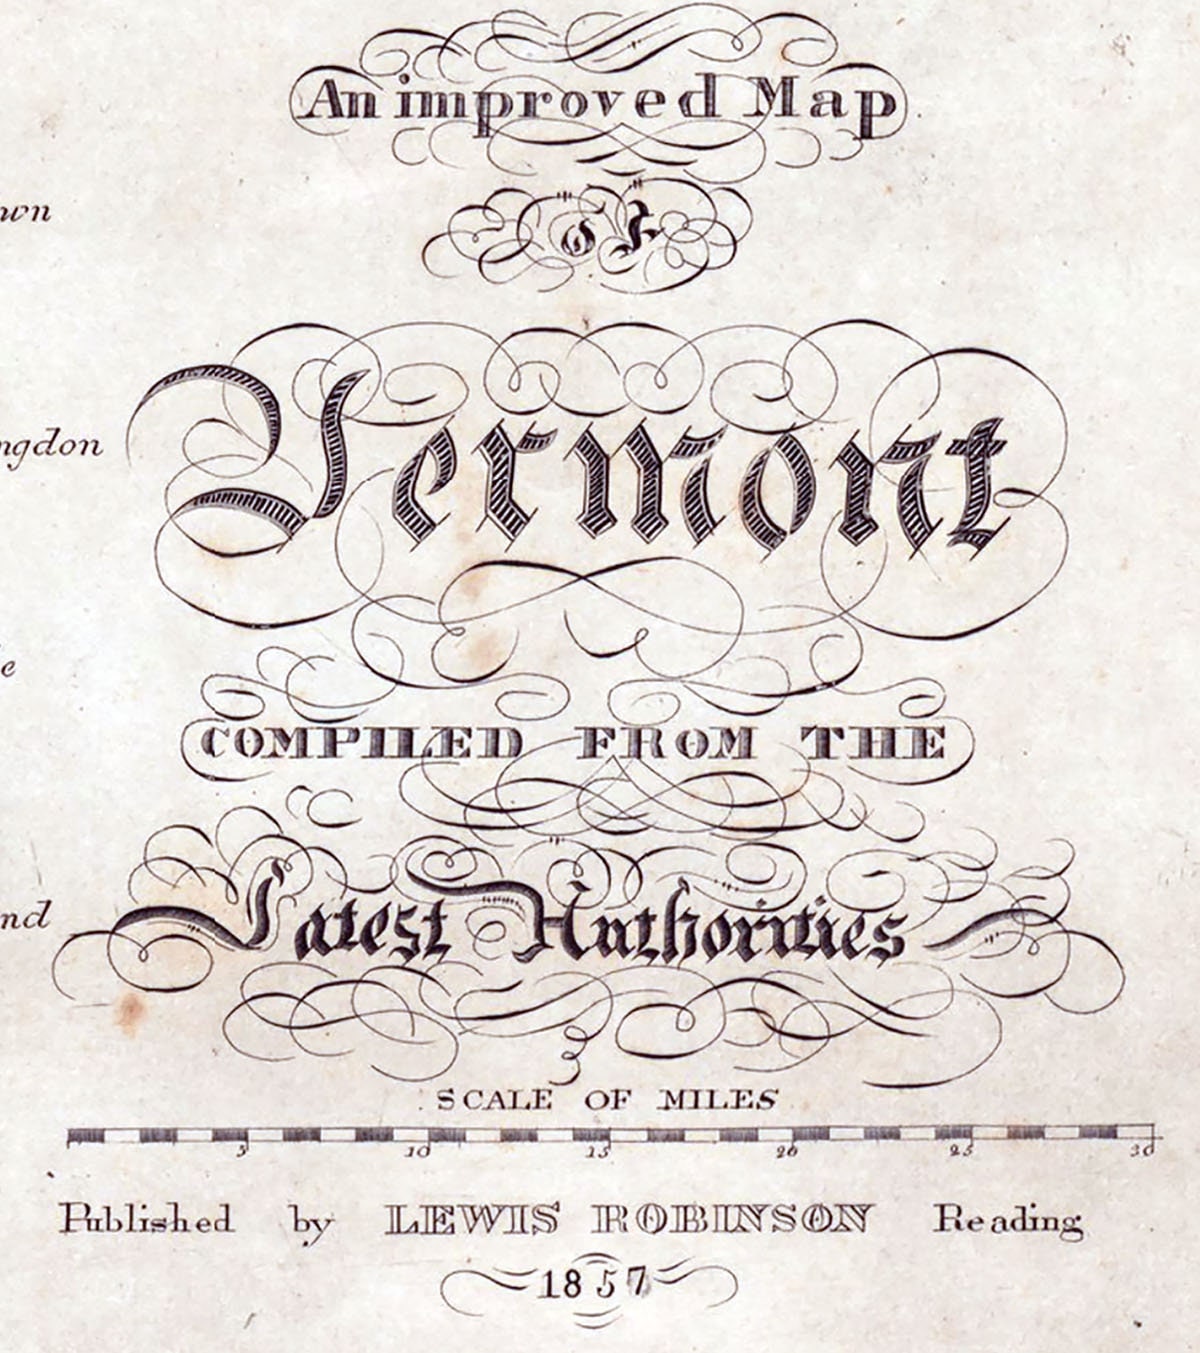 An improved Map
of
Vermont
COMPILED FROM THE
Latest Authorities
SCALE OF MILES
5 10 15 20 25 30
Published by LEWIS ROBINSON Reading
1857